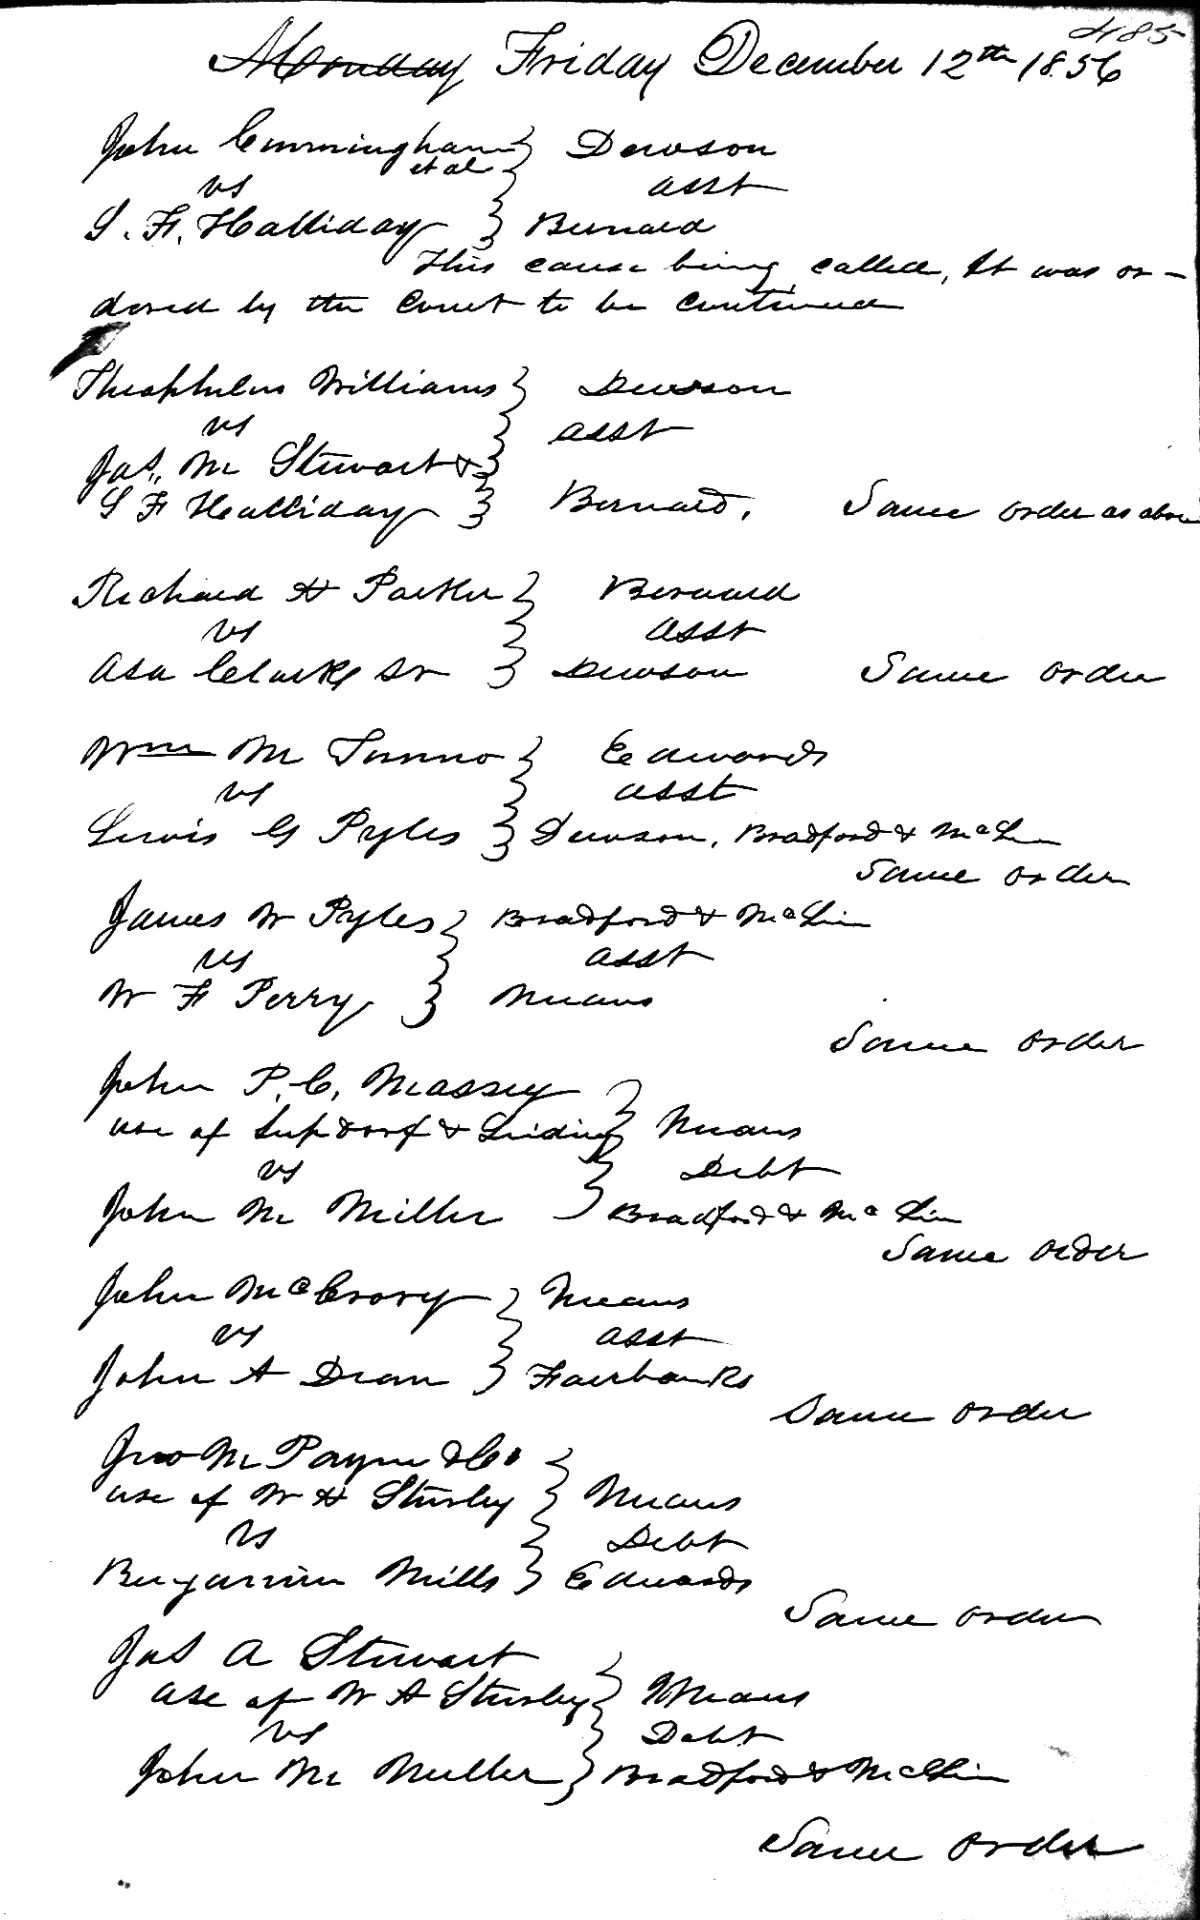 485
Monday Friday December 12th 1856
John Cunningham } Dawson
et al
vs asst
S. F. Halliday } Bernard
This cause being called, It was or-
dered by the Court to be continued
Theophilus Williams } Dawson
vs asst
Jas. M Stewart &
S F Halliday } Bernard. Same order as above
Richard H Parker } Bernard
vs asst
Asa Clarke Sr } Dawson Same order
Wm M Tunno } Edwards
vs asst
Lewis G Pyles } Dawson, Bradford & McLin
Same order
James W Pyles } Bradford & McLin
vs asst
W F Perry } Means
Same order
John P. C. Massey
use of &
} Means
vs Debt
John M Miller } Bradford & McLin
Same order
John McCrory } Means
vs asst
John A Dean } Fairbanks
Same order
Jno M Payne & Co
use of W H } Means
vs Debt
Benjamin Mills } Edwards
Same order
Jas A Stewart
use of W A } Means
vs Debt
John M Miller } Bradford & McLin
Same order